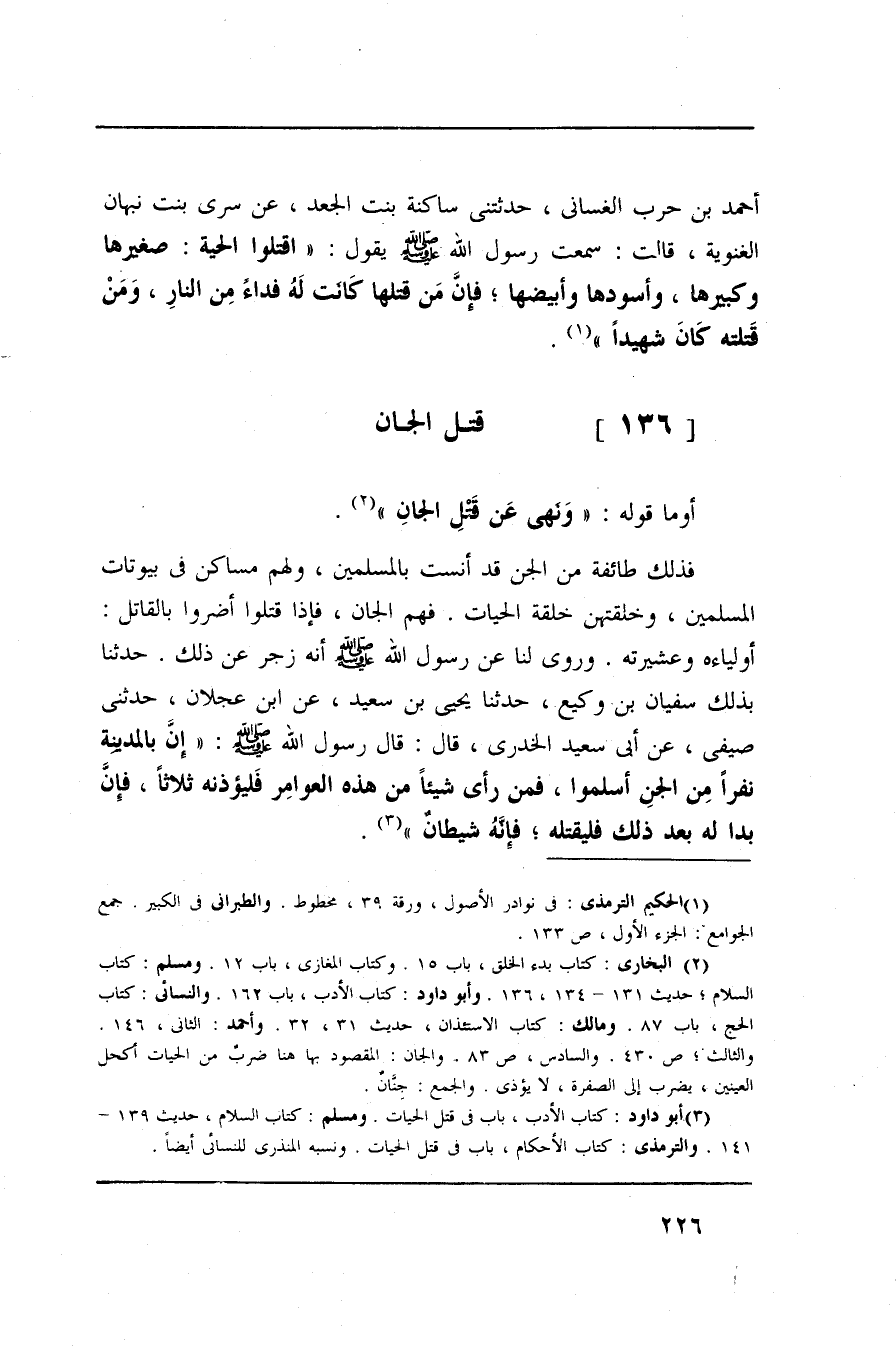 أحمد بن حرب الغسانى ، حدثتنى ساكنة بنت الجعد ، عن سرى بنت نبهان
الغنوية ، قالت : سمعت رسول الله ﷺ يقول : « اقتلوا الحية : صغيرها
وكبيرها ، وأسودها وأبيضها ؛ فإنَّ مَن قتلها كَانت لَهُ فداءً مِن النارِ ، وَمَنْ
قَتلته كَانَ شهيداً »(١) .
[ ١٣٦ ] قتـل الجـان
أوما قوله : « وَنَهى عَن قَتْلِ الجانِ »(٢) .
فذلك طائفة من الجن قد أنست بالمسلمين ، ولهم مساكن فى بيوتات
المسلمين ، وخلقتهن خلقة الحيات . فهم الجان ، فإذا قتلوا أضروا بالقاتل :
أولياءه وعشيرته . وروى لنا عن رسول الله ﷺ أنه زجر عن ذلك . حدثنا
بذلك سفيان بن وكيع ، حدثنا يحيى بن سعيد ، عن ابن عجلان ، حدثنى
صيفى ، عن أبى سعيد الخدرى ، قال : قال رسول الله ﷺ : « إنَّ بالمدينِة
نفراً مِن الجنِ أسلموا ، فمن رأى شيئاً من هذه العوامِر فَليؤذنه ثلاثاً ، فإنَّ
بدا له بعد ذلك فليقتله ؛ فإنَّهُ شيطانٌ »(٣) .
(١)الحكيم الترمذى : فى نوادر الأصول ، ورقة ٣٩ ، مخطوط . والطبرانى فى الكبير . جمع
الجوامع : الجزء الأول ، ص ١٣٣ .
(٢) البخارى : كتاب بدء الخلق ، باب ١٥ . وكتاب المغازى ، باب ١٢ . ومسلم : كتاب
السلام ؛ حديث ١٣١ – ١٣٤ ، ١٣٦ . وأبو داود : كتاب الأدب ، باب ١٦٢ . والنسائى : كتاب
الحج ، باب ٨٧ . ومالك : كتاب الاستئذان ، حديث ٣١ ، ٣٢ . وأحمد : الثانى ، ١٤٦ .
والثالث ؛ ص ٤٣٠ . والسادس ، ص ٨٣ . والجان : المقصود بها هنا ضربٌ من الحيات أكحل
العينين ، يضرب إلى الصفرة ، لا يؤذى . والجمع : جنَّانٌ .
(٣)أبو داود : كتاب الأدب ، باب فى قتل الحيات . ومسلم : كتاب السلام ، حديث ١٣٩ –
١٤١ . والترمذى : كتاب الأحكام ، باب فى قتل الحيات . ونسبه المنذرى للنسائى أيضاً .
٢٢٦